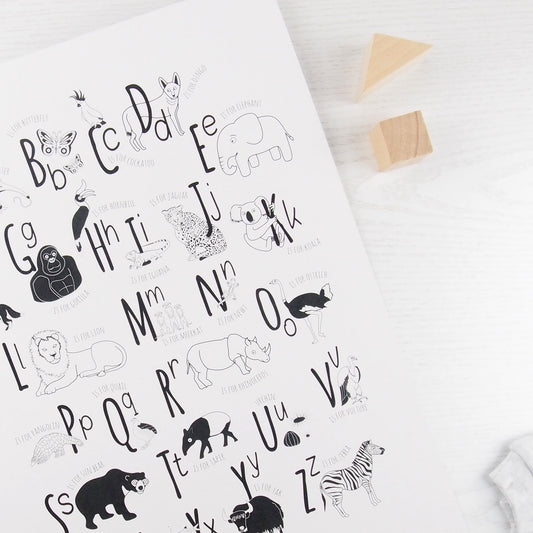 IS FOR BUTTERFLY
Bb
Cc
IS FOR COCKATOO
Dd
IS FOR DINGO
Ee
IS FOR ELEPHANT
Gg
IS FOR GORILLA
Hh
IS FOR HORNBILL
Ii
IS FOR IGUANA
Jj
IS FOR JAGUAR
Kk
IS FOR KOALA
Ll
IS FOR LION
Mm
IS FOR MEERKAT
Nn
IS FOR NEWT
Oo
IS FOR OSTRICH
Pp
IS FOR PANGOLIN
Qq
IS FOR QUAIL
Rr
IS FOR RHINOCEROS
Ss
IS FOR SUN BEAR
Tt
IS FOR TAPIR
Uu
URCHIN
Vv
IS FOR VULTURE
Yy
IS FOR YAK
Zz
IS FOR ZEBRA